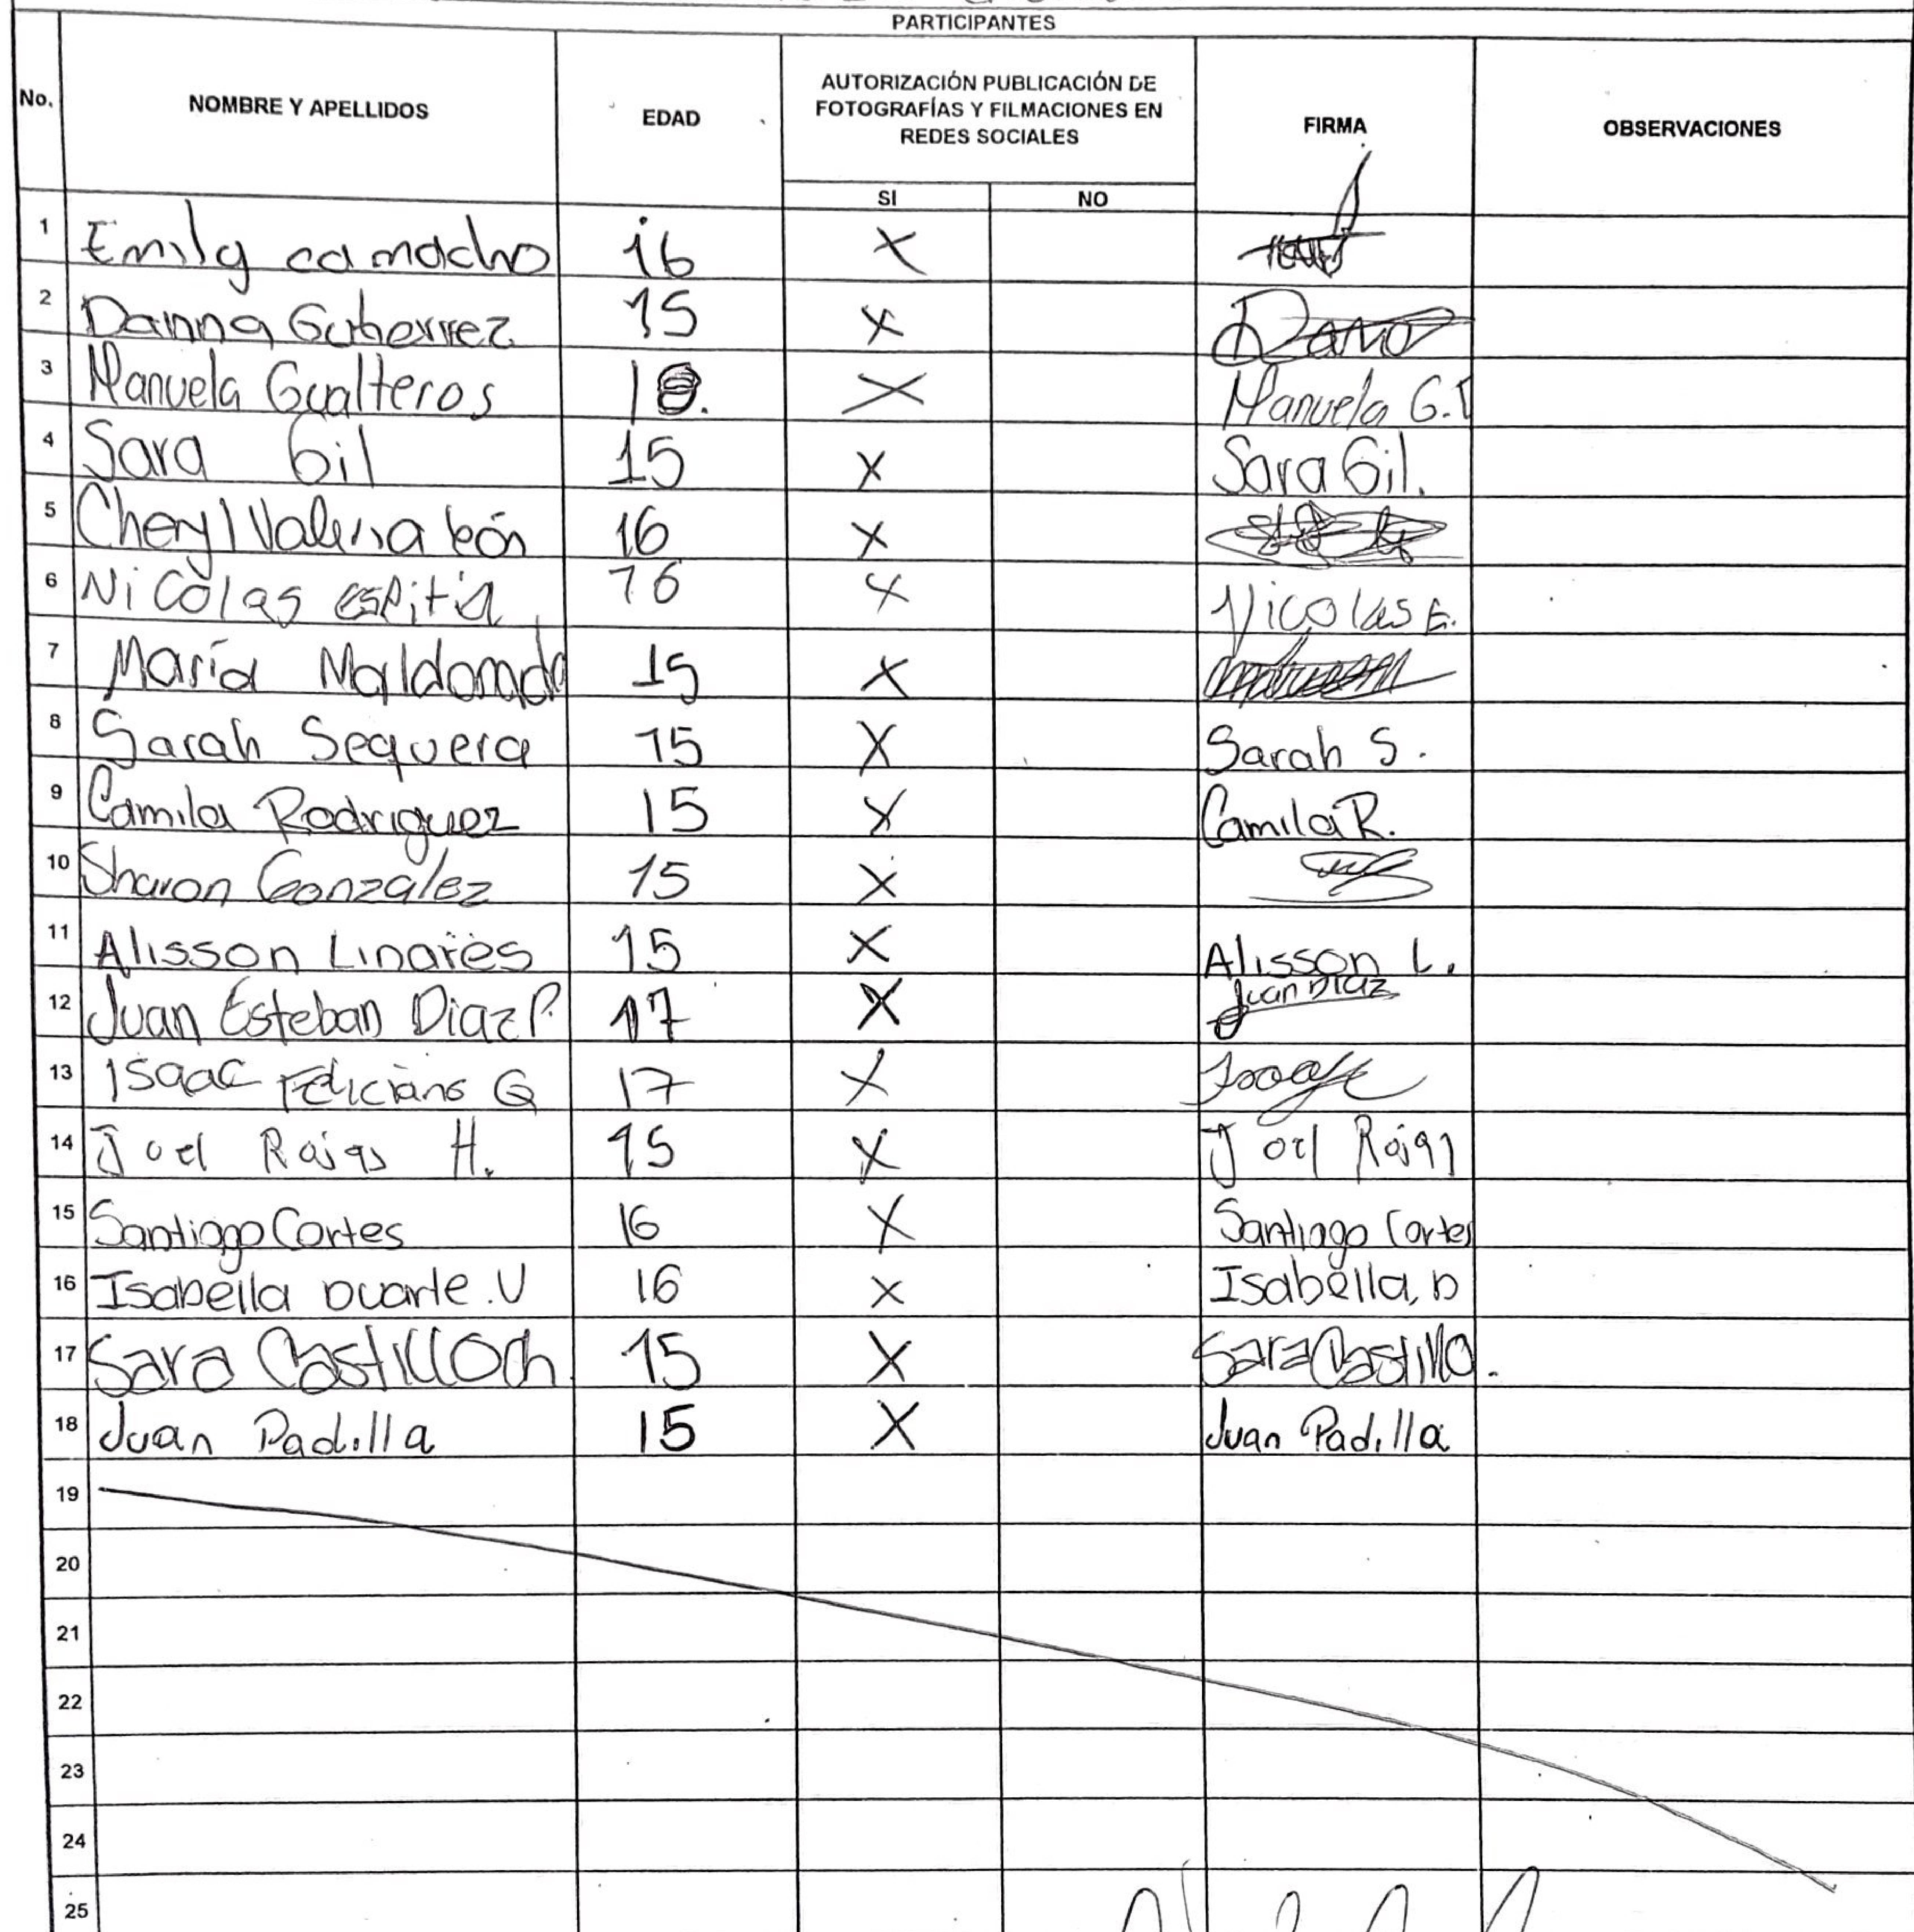 PARTICIPANTES
No. NOMBRE Y APELLIDOS EDAD AUTORIZACIÓN PUBLICACIÓN DE FOTOGRAFÍAS Y FILMACIONES EN REDES SOCIALES FIRMA OBSERVACIONES
SI NO
1 Emily camacho 16 X
2 Danna Gutierrez 15 X
3 Manuela Gualteros X Manuela G.
4 Sara Gil 15 X Sara Gil.
5 Cheryl Valeria León 16 X
6 Nicolas Espitia 16 X Nicolas E.
7 María Maldonado 15 X
8 Sarah Sequera 15 X Sarah S.
9 Camila Rodriguez 15 X Camila R.
10 Sharon González 15 X
11 Alisson Linares 15 X Alisson L.
12 Juan Esteban Diaz P. 17 X Juan Diaz
13 Isaac Feliciano G 17 X
14 Joel Rojas H. 15 X Joel Rojas
15 Santiago Cortes 16 X Santiago Cortes
16 Isabella Duarte.V 16 X Isabella, D
17 Sara Castillo Ch 15 X Sara Castillo.
18 Juan Padilla 15 X Juan Padilla
19
20
21
22
23
24
25